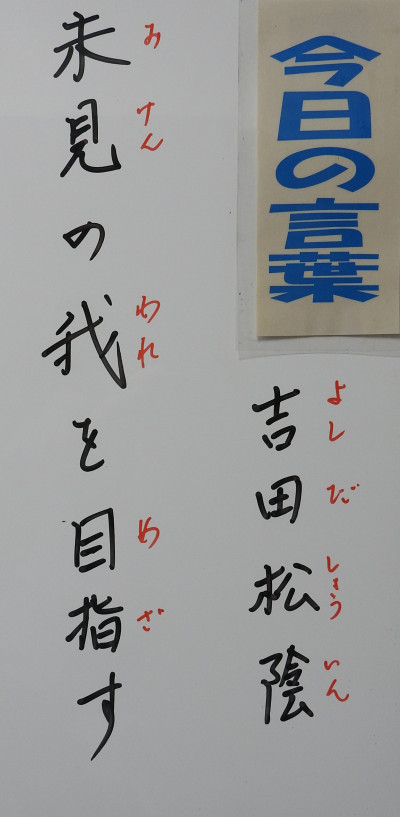 今日の言葉
吉田松陰
よし だ しょう いん
未見の我を目指す
み けん われ め ざ